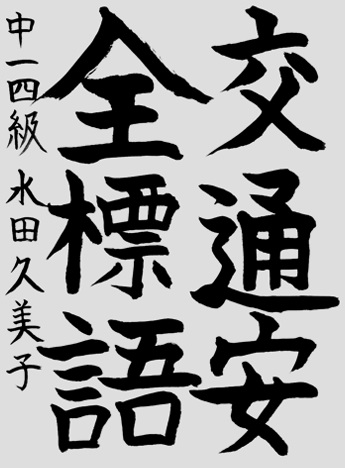 交通安
全標語
中一四級 水田久美子